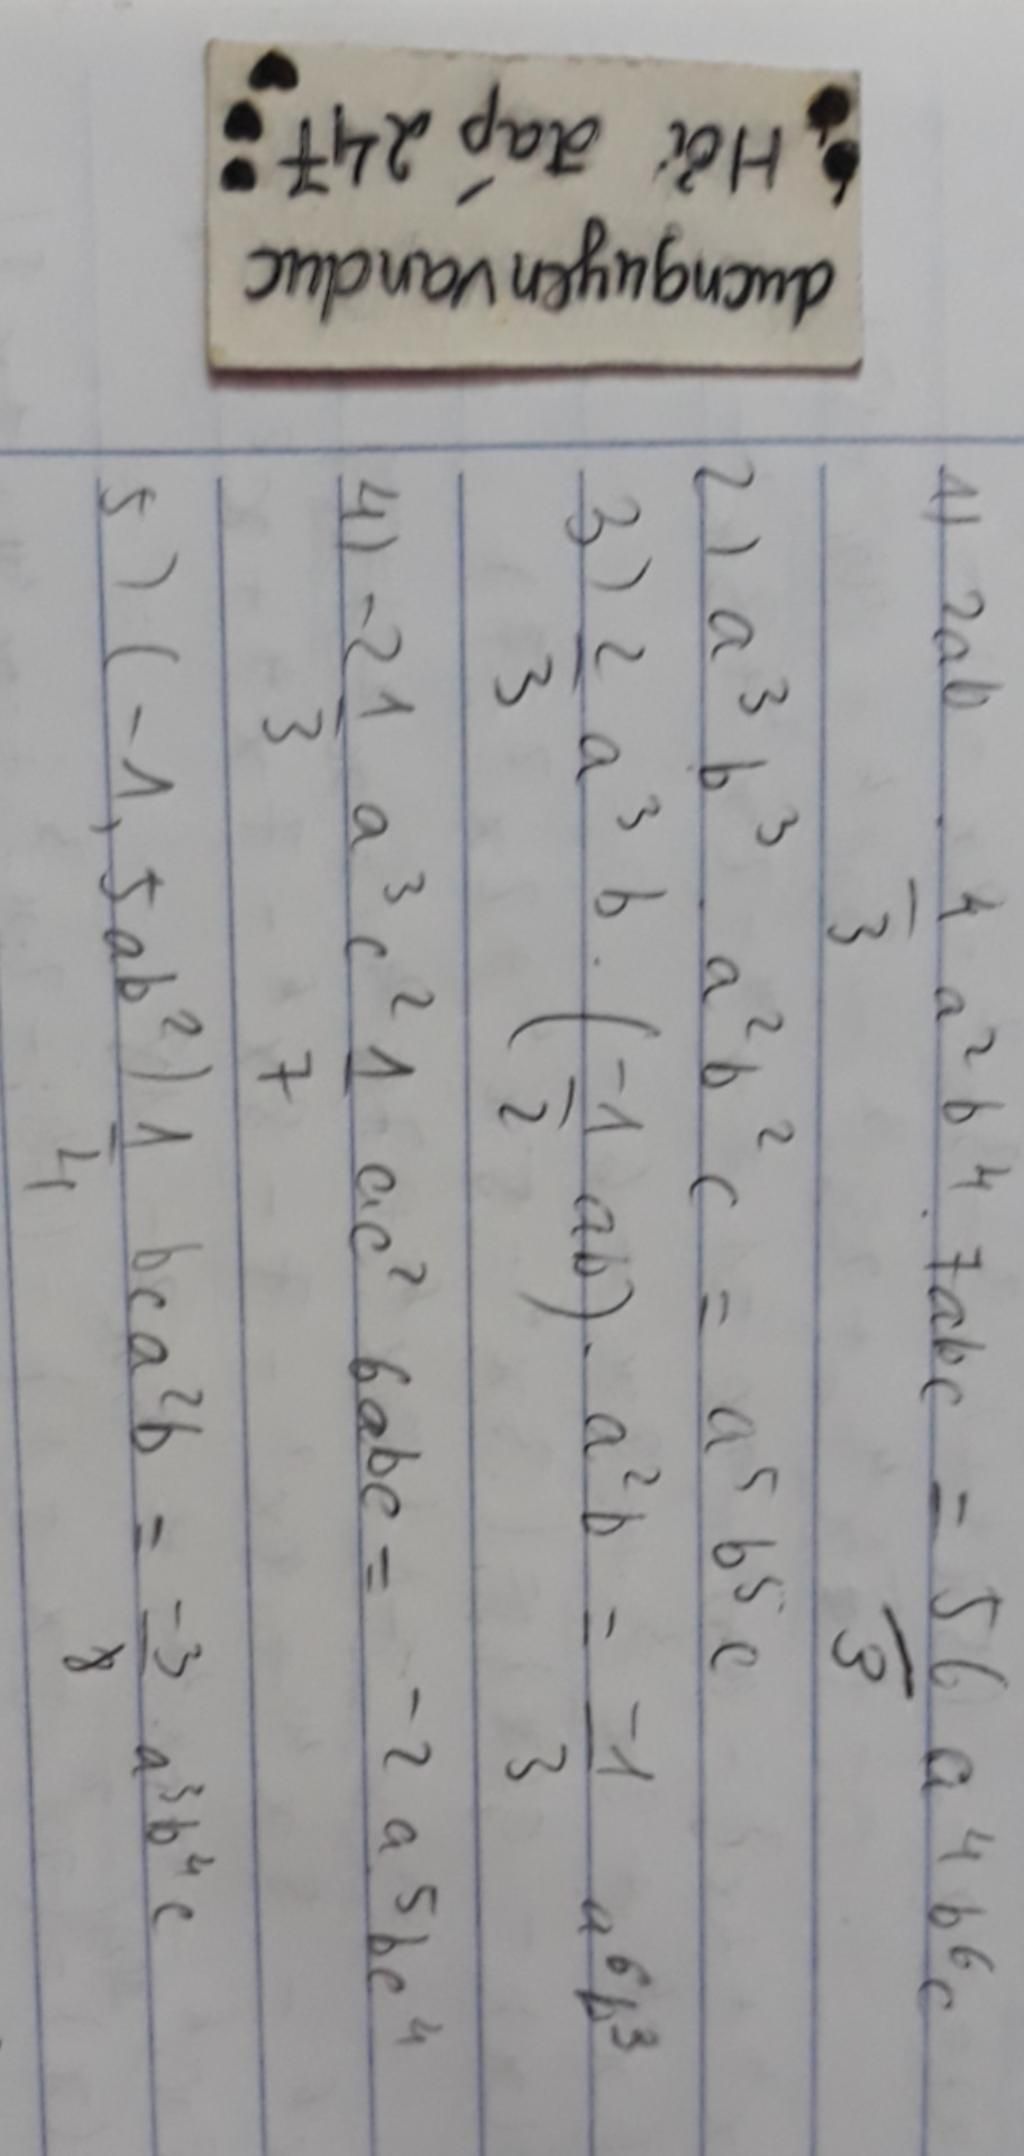 ducnguyenvanduc
Hỏi đáp 247
1) 2ab . 4/3 a²b⁴ . 7abc = 56/3 a⁴b⁶c
2) a³b³ . a²b²c = a⁵b⁵c
3) 2/3 a³b . (-1/2 ab) . a²b = -1/3 a⁶b³
4) -2 1/3 a³c² 1/7 ac² 6abc = -2a⁵bc⁴
5) (-1,5ab²) 1/4 bca²b = -3/8 a³b⁴c